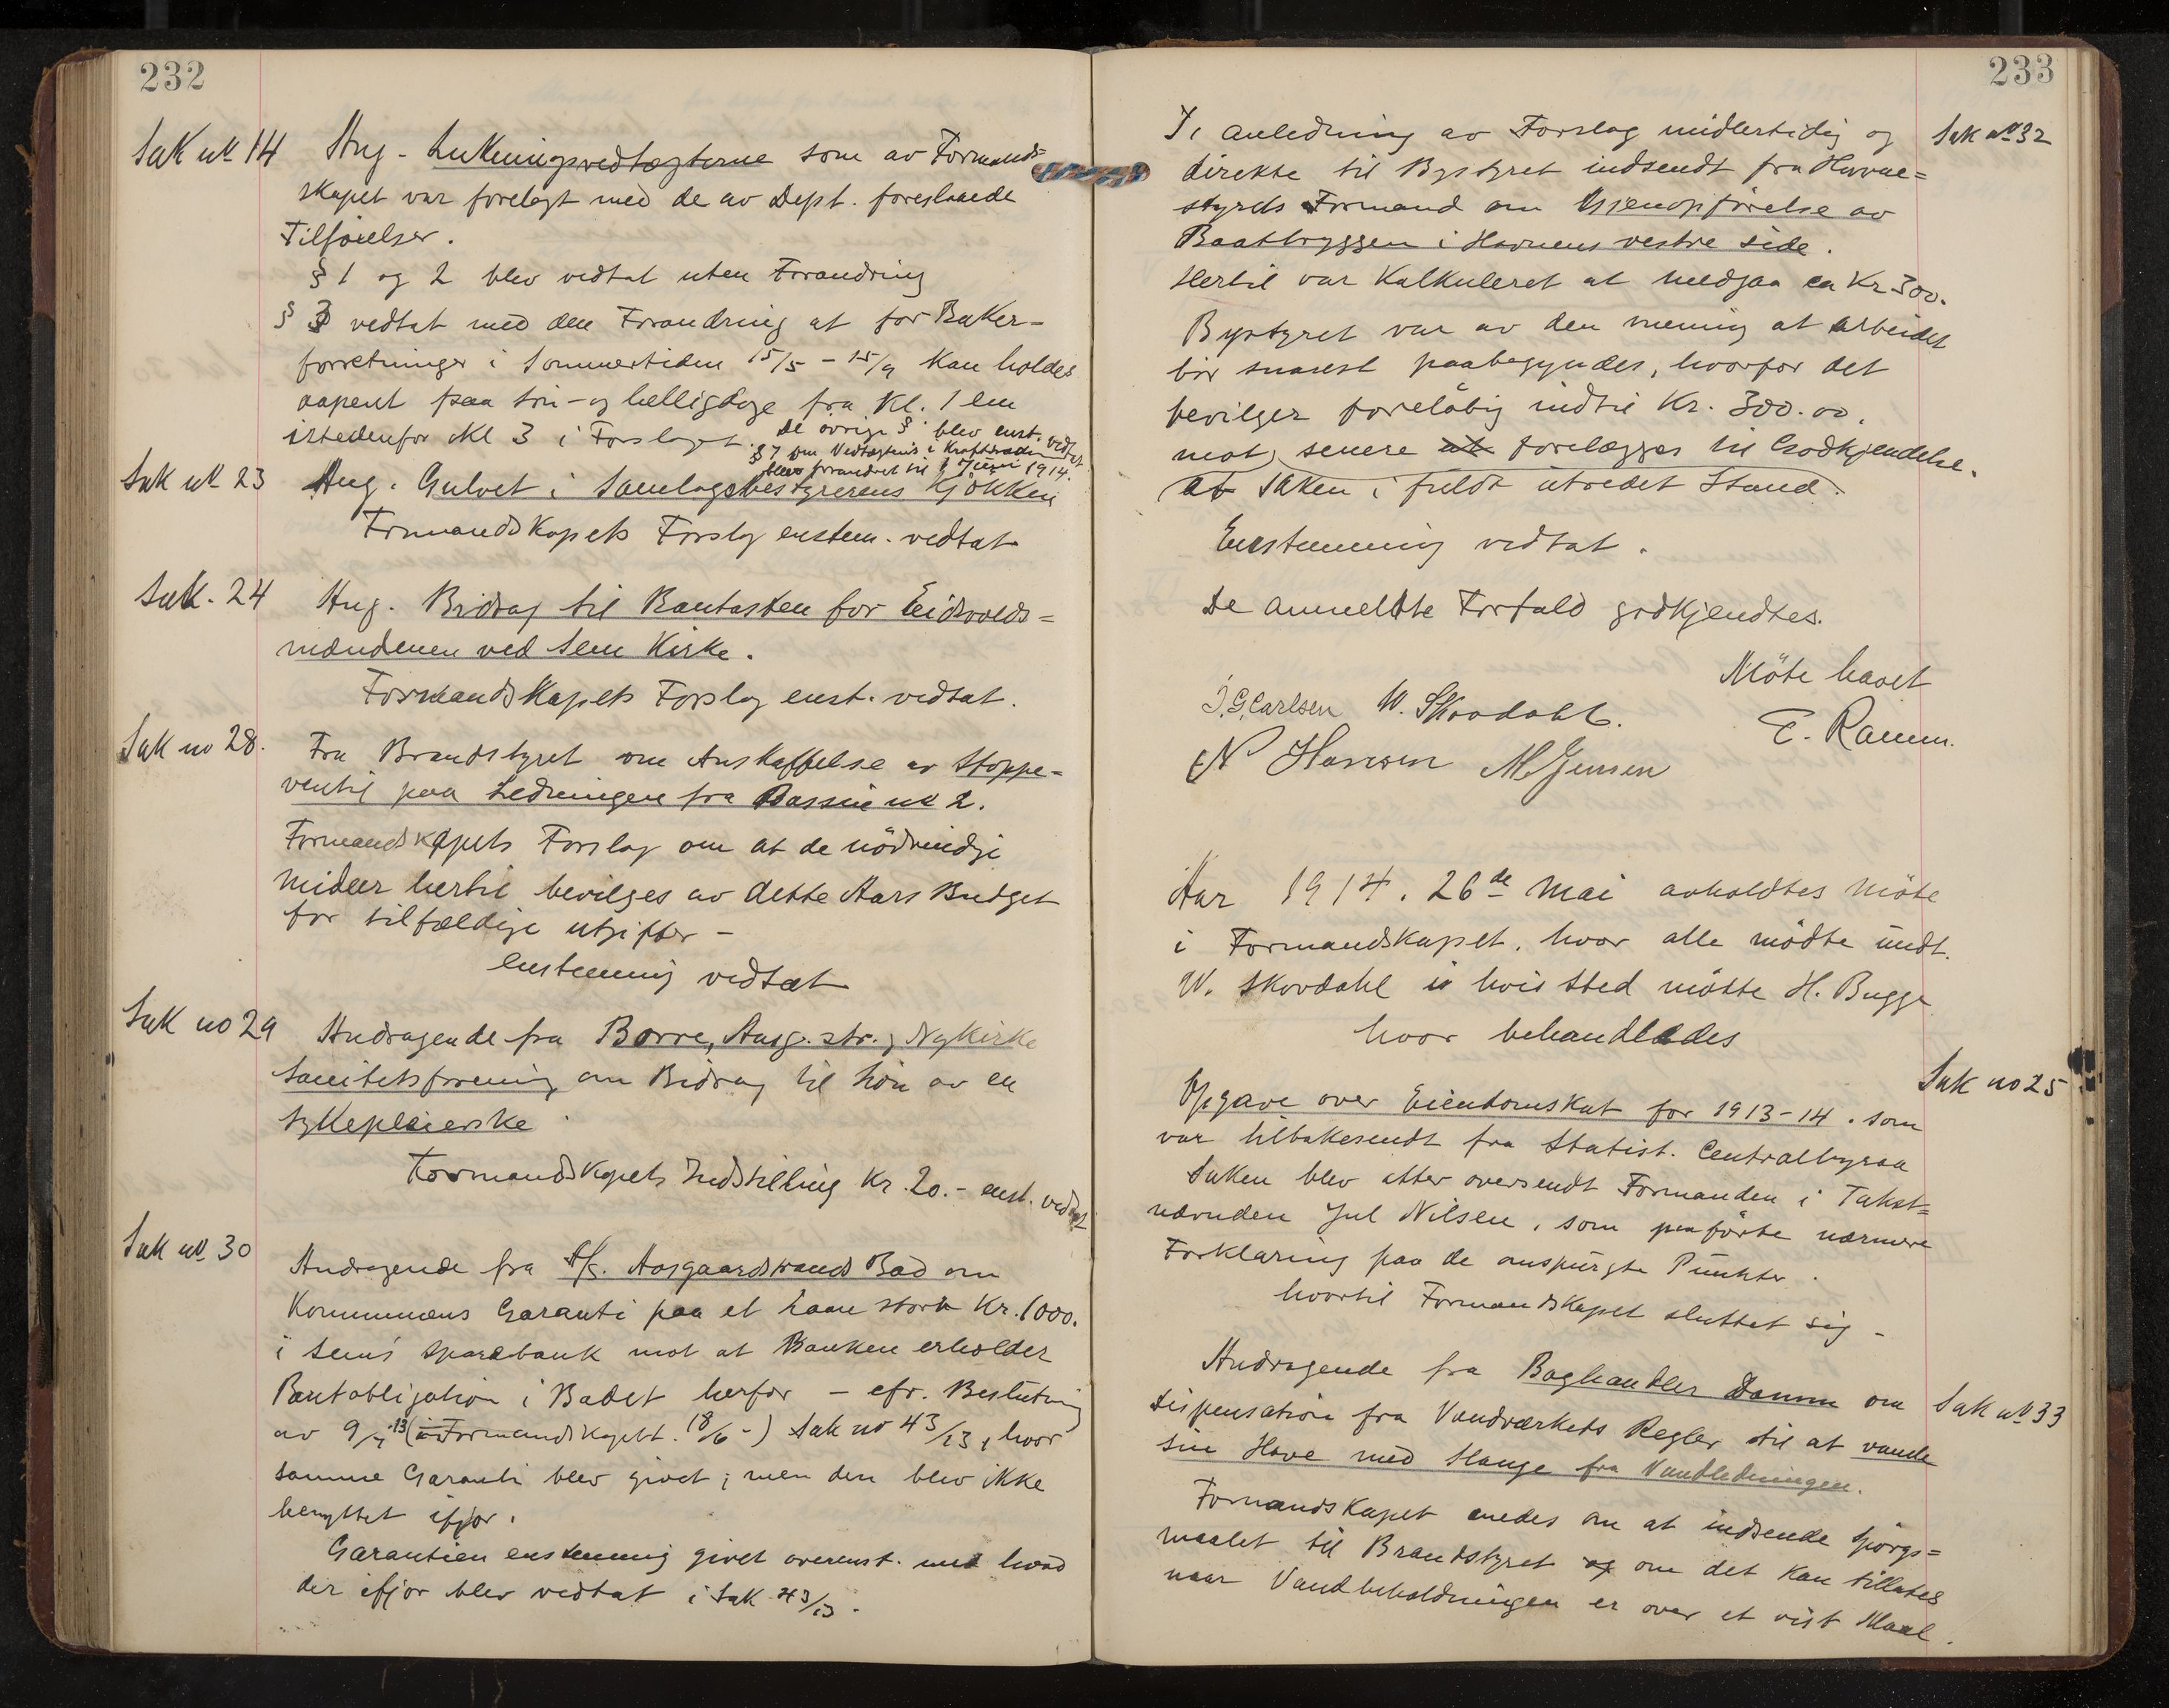 232
Sak no 14 Ang. Lukningsvedtægterne som av Formand=
skapet var forelagt med de av Dept. foreslaaede
Tilføielser.
§ 1 og 2 blev vedtat uten Forandring
§ 3 vedtat med den Forandring at for Baker-
forretninger i Sommertiden 15/5 - 15/9 kan holdes
aapent paa søn- og helligdage fra Kl. 1 em
istedenfor Kl 3 i Forslaget. De øvrige § blev enst. vedtat
§ 7 om Vedtægtens i Krafttræden
blev forandret til 1 Juni 1914.
Sak no 23 Ang. Gulvet i Samlagsbestyrerens Kjøkken
Formandskapets Forslag enstem. vedtat
Sak. 24 Ang. Bidrag til Bautasten for Eidsvolds=
mændenen ved Sem Kirke.
Formandskapets Forslag enst. vedtat.
Sak no 28. Fra Brandstyret om Anskaffelse av Stoppe=
ventil paa Ledningen fra Bassin no 2.
Formandskapets Forslag om at de nödvendige
Midler hertil bevilges av dette Aars Budget
for tilfældige utgifter -
enstemmig vedtat
Sak no 29 Andragende fra Borre, Aasg.str. og Nykirke
Sanitetsforening om Bidrag til Løn av en
sykepleierske
Formandskapets Indstilling Kr. 20.- enst. vedtat
Sak no 30 Andragende fra A/S. Aasgaardstrands Bad om
Kommunens Garanti paa et Laan stort Kr. 1000.
i Sem's Sparebank mot at Banken erholder
Pantobligation i Badet herfor - cfr. Beslutning
av 9/7 13 (i Formandskapet. 18/6 -) Sak no 43/13, hvor
samme Garanti blev givet; men den blev ikke
benyttet ifjor.
Garantien enstemmig givet overenst. med hvad
der ifjor blev vedtat i Sak 43/13.
233
I anledning av Forslag midlertidig og Sak no 32
direkte til Bystyret indsendt fra Havne=
styrets Formand om Gjenopførelse av
Baatbryggen i Havnens vestre side.
Hertil var Kalkuleret at medgaa ca Kr 300.
Bystyret var av den mening at arbeidet
bör snarest paabegyndes, hvorfor det
bevilger foreløbig indtil Kr. 300.00.
mot senere at forelægges til Godkjendelse.
at Saken i fuldt utredet Stand.
Enstemmig vedtat.
De anmeldte Forfald godkjendtes.
Möte hævet
J. G. Carlsen W. Skovdahl. E. Ramm.
N Hansen M Jensen
Aar 1914. 26de Mai avholdtes Möte
i Formandskapet. hvor alle mödte undt.
W. Skovdahl i hvis sted mötte H. Bugge
hvor behandledes
Opgave over Eiendomskat for 1913-14. som Sak no 25
var tilbakesendt fra Statist. Centralbyraa
Saken blev atter oversendt Formanden i Takst=
nævnden Jul Nilsen, som paaførte nærmere
Forklaring paa de anspurgte Punkter.
hvortil Formandskapet sluttet sig -
Andragende fra Boghandler Damm om Sak no 33
Dispensation fra Vandværkets Regler til at vande
sin Have med Slange fra Vandledningen.
Formandskapet enedes om at indsende Spörgs=
maalet til Brandstyret og om det kan tillates
naar Vandbeholdningen er over et vist Maal.